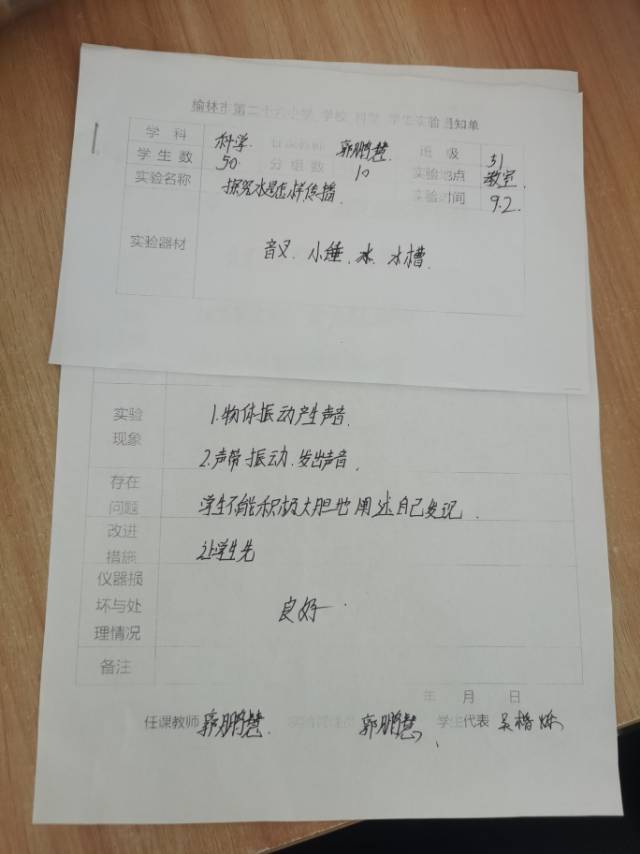 榆林市第二十六小学 学校 科学 学生实验通知单
学 科 科学 任课教师 郭鹏慧 班 级 31
学生数 50 分组数 10 实验地点 教室
实验名称 探究水是怎样传播 实验时间 9.2
实验器材 音叉、小锤、水、水槽
实验现象 1.物体振动产生声音
2.声带振动.发出声音
存在问题 学生不能积极大胆地阐述自己发现.
改进措施 让学生先
仪器损坏与处理情况 良好.
备注
年 月 日
任课教师 郭鹏慧. 郭鹏慧、 学生代表 吴楷